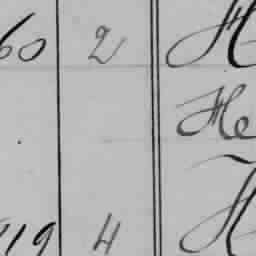 60 2 H
He
119 4 H